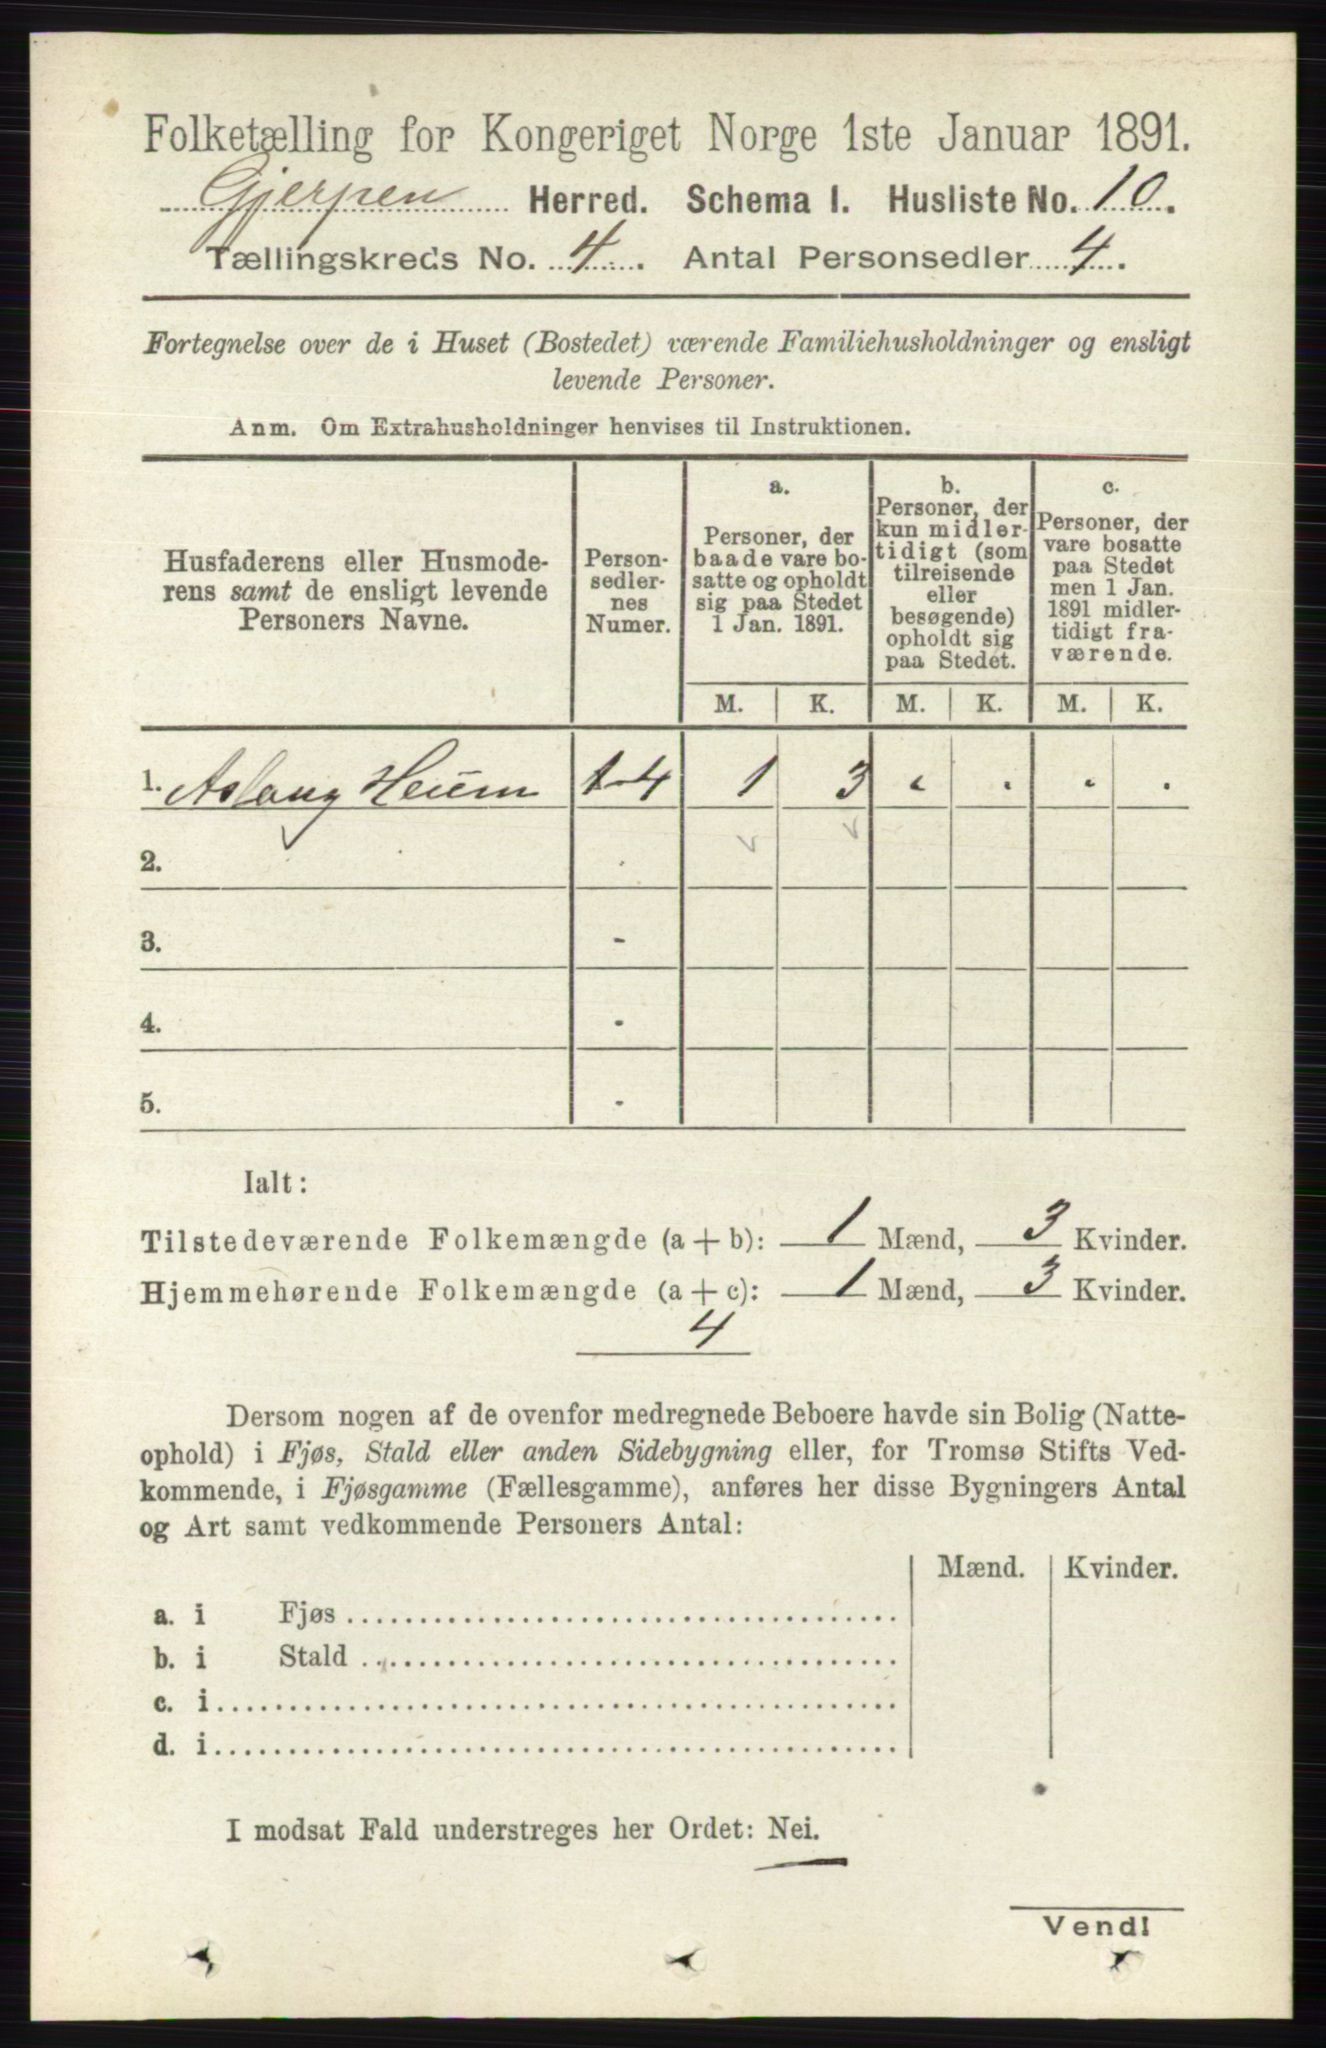 Folketælling for Kongeriget Norge 1ste Januar 1891.
Gjerpen Herred. Schema I. Husliste No. 10.
Tællingskreds No. 4. Antal Personsedler 4.
Fortegnelse over de i Huset (Bostedet) værende Familiehusholdninger og ensligt
levende Personer.
Anm. Om Extrahusholdninger henvises til Instruktionen.
Husfaderens eller Husmode-
rens samt de ensligt levende
Personers Navne.
Person-
sedler-
nes
Numer.
a.
Personer, der
baade vare bo-
satte og opholdt
sig paa Stedet
1 Jan. 1891.
b.
Personer, der
kun midler-
tidigt (som
tilreisende
eller
besøgende)
opholdt sig
paa Stedet.
c.
Personer, der
vare bosatte
paa Stedet
men 1 Jan.
1891 midler-
tidigt fra-
værende.
M. K. M. K. M. K.
1. Aslaug Heium 1-4 1 3 " . " .
2. .
3. -
4. -
5. -
Ialt:
Tilstedeværende Folkemængde (a + b): 1 Mænd, 3 Kvinder.
Hjemmehørende Folkemængde (a + c): 1 Mænd, 3 Kvinder.
4
Dersom nogen af de ovenfor medregnede Beboere havde sin Bolig (Natte-
ophold) i Fjøs, Stald eller anden Sidebygning eller, for Tromsø Stifts Ved-
kommende, i Fjøsgamme (Fællesgamme), anføres her disse Bygningers Antal
og Art samt vedkommende Personers Antal:
Mænd. Kvinder.
a. i Fjøs
b. i Stald
c. i
d. i
I modsat Fald understreges her Ordet: Nei.
Vend!